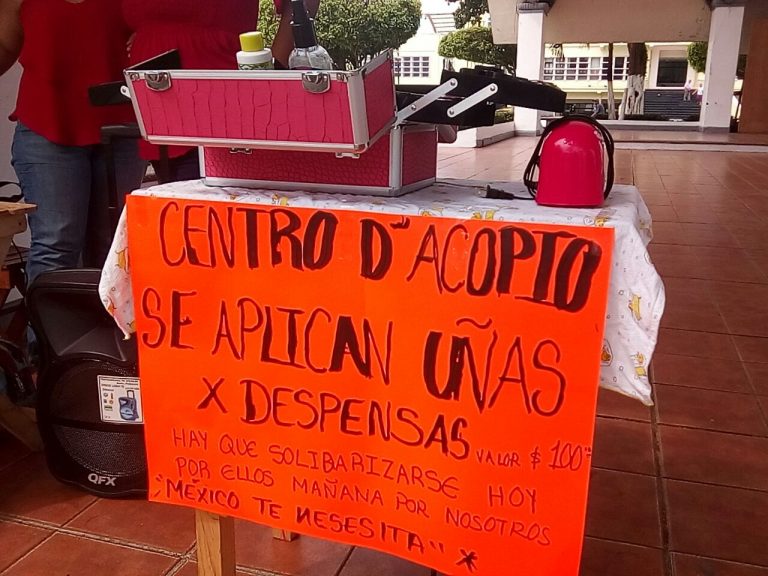 CENTRO D" ACOPIO
SE APLICAN UÑAS
X DESPENSAS VALOR $ 100
HAY QUE SOLIBARIZARSE HOY
POR ELLOS MAÑANA POR NOSOTROS
"MÉXICO TE NESESITA"
QFX